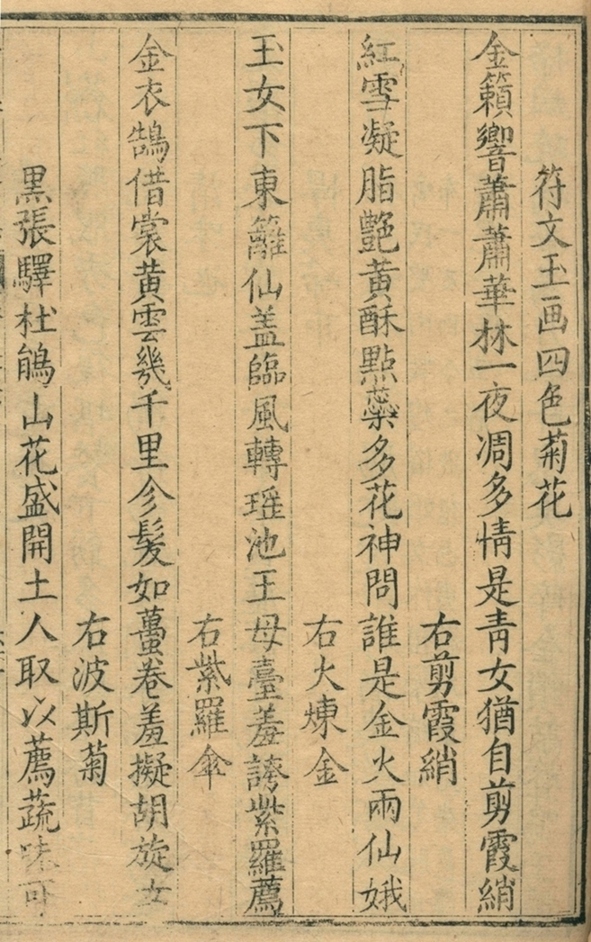 符文玉画四色菊花
金籟響蕭蕭華林一夜凋多情是青女猶自剪霞綃
右剪霞綃
紅雪凝脂艶黄酥點蘂多花神問誰是金火兩仙娥
右大煉金
玉女下東籬仙盖臨風轉瑶池王母臺羞誇紫羅薦
右紫羅傘
金衣鵠借裳黄雲幾千里㐱髪如蠆卷羞擬胡旋女
右波斯菊
黒張驛杜鵑山花盛開土人取以薦蔬味可